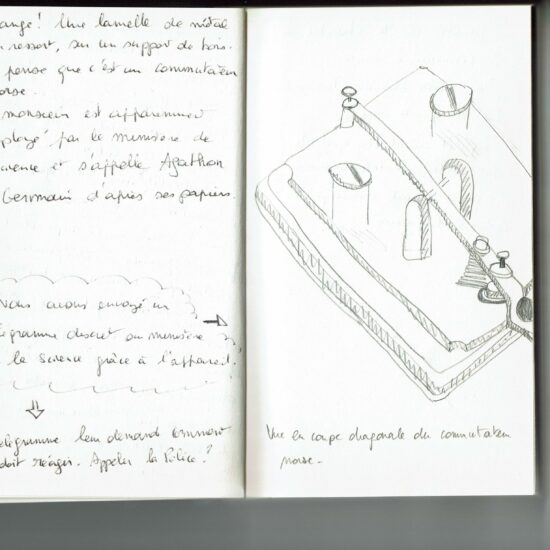 ange! Une lamelle de métal
ressort, sur un support de bois.
pense que c'est un commutateu
orse.
monsieur est apparemment
ployé par le ministère de
cience et s'appelle Agathon
Germain d'après ses papiers.
Nous avons envoyé un
égramme discret au ministère
la Science grâce à l'appareil.
élégramme leur demand comment
doit réagir. Appeler la Police?
Vue en coupe diagonale du commutateu
morse.